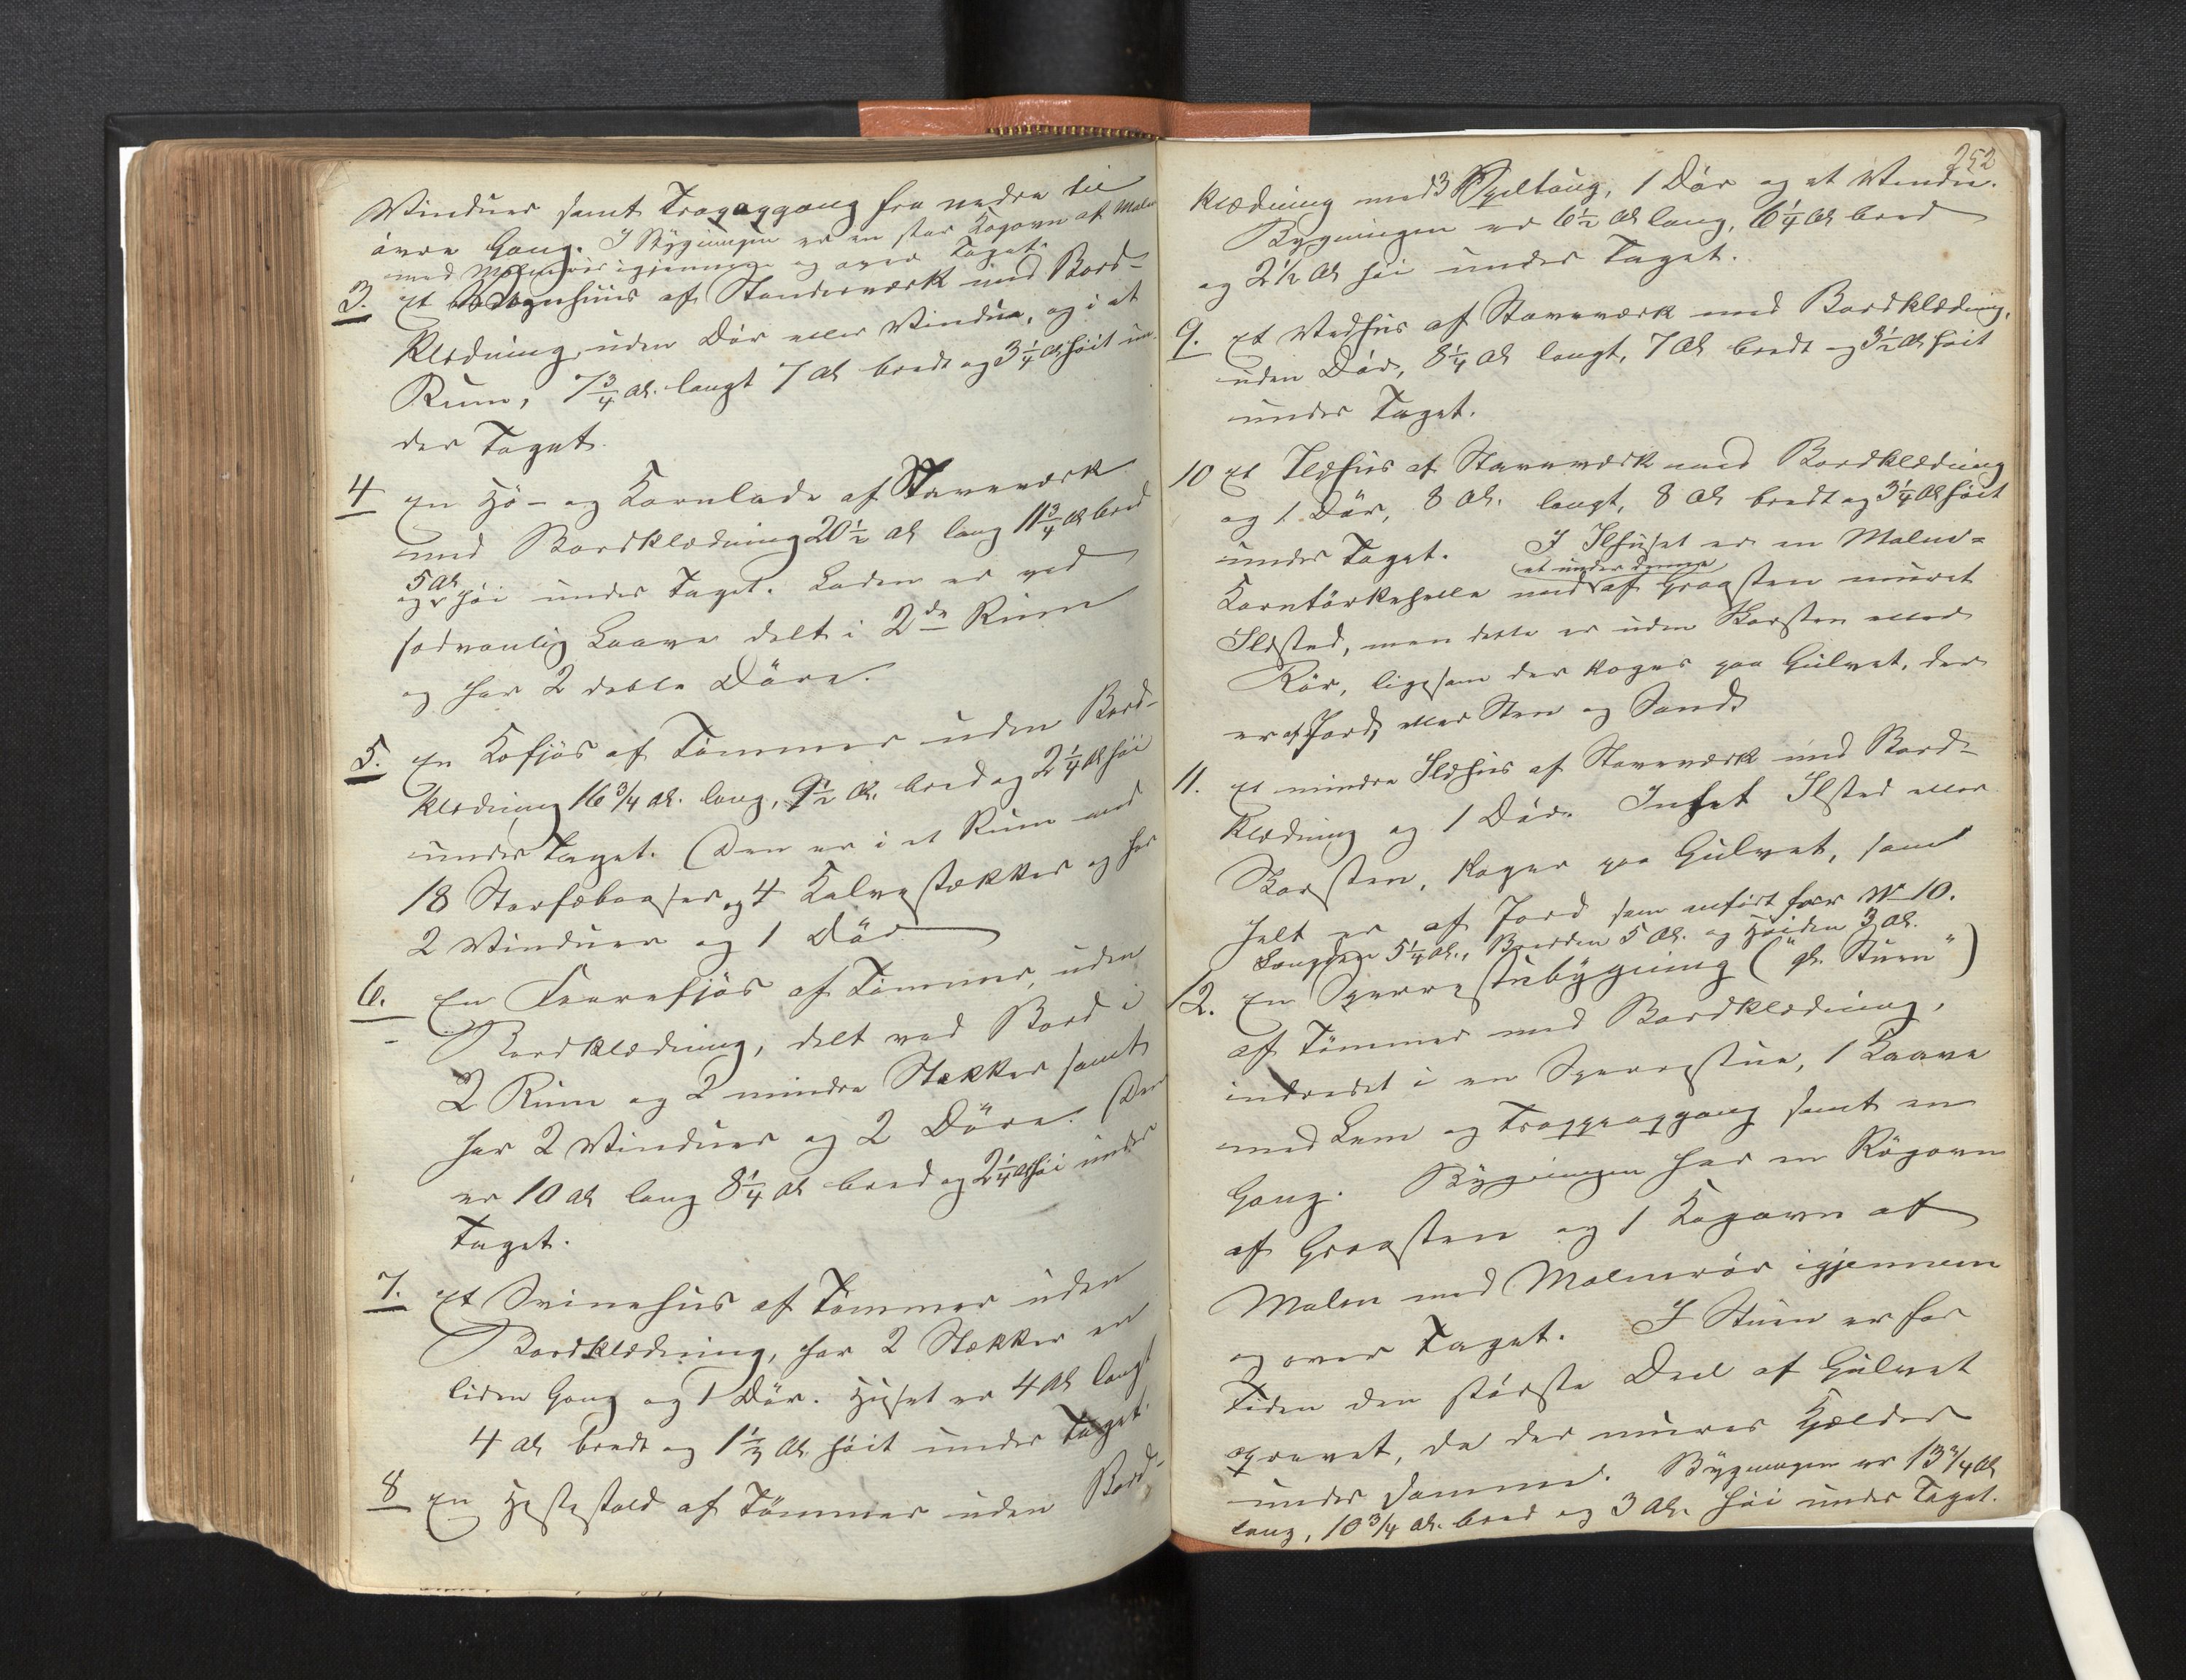 Vinduer samt Trapegang fra nedre til
övre Gang. I Bygningen er en stor Kogovn af Malm
med Malmrör igjennem og over Taget.
3. Et Vognhuus af Standerværk med Bord-
klædning, uden Dör eller Vindue, og i et
Rum, 7 3/4 Al. langt 7 Al bredt og 3 1/4 Al höit un-
der Taget.
4 En Hö- og Kornlade af Stavværk
med Bordklædning 20 1/2 Al lang 11 3/4 Al bred
og 5 Al höi under Taget. Laden er ved
sædvanlig Laave delt i 2de Rum
og har 2 doble Döre.
5. En Kofjös af Tömmer uden Bord-
klædning 16 3/4 Al. lang, 9 1/2 Al. bred og 2 1/4 Al höi
under Taget. Den er i et Rum med
18 Storfæbaaser og 4 Kalvestækker og har
2 Vinduer og 1 Dör
6. En Faarefjös af Tömmer, uden
Bordklædning, delt ved Bord i
2 Rum og 2 mindre Stækker samt
har 2 Vinduer og 2 Döre. Den
er 10 Al lang 8 1/4 Al bred og 2 1/4 Al höi under
Taget.
7. Et Svinehus af Tömmer uden
Bordklædning, har 2 Stækker en
liden Gang og 1 Dör. Huset er 4 Al langt
4 Al bredt og 1 1/2 Al. höit under Taget.
8 En Hestestald af Tömmer uden Bord-
252
klædning med 3 Spiltaug, 1 Dör og et Vindue.
Bygningen er 6 1/2 Al lang, 6 1/4 Al bred
og 2 1/2 Al höi under Taget.
9. Et Vedhus af Stavværk med Bordklædning,
uden Dör, 8 1/4 Al langt, 7 Al bredt og 3 1/2 Al höit
under Taget.
10 Et Ildhus af Stavværk med Bordklædning
og 1 Dör, 8 Al. langt, 8 Al bredt og 3 1/4 Al höit
under Taget. I Ilhuset er en Malm-
Korntörkehelle med et under denne af Graasten muret
Ildsted, men dette er uden Skorsten eller
Rör, ligesom der koges paa Gulvet, der
er af Jord, eller Sten og Sand.
11. Et mindre Ildhus af Stavværk med Bord-
klædning og 1 Dör. Intet Ilsted eller
Skorsten, koges paa Gulvet, som
helt er af Jord som anfört for No 10.
Længden 5 1/4 Al., Bredden 5 Al. og Höiden 3 Al.
12. En Sperrestubygning ("gl. Stuen")
af Tömmer med Bordklædning,
indredet i en Sperrestue, 1 Laave
med Lem og Trappeopgang samt en
Gang. Bygningen har en Rögovn
af Graasten og 1 Kogovn af
Malm med Malmrör igjennem
og over Taget. I Stuen er for
Tiden den störste Deel af Gulvet
oprevet, da der mures Kjelder
under samme. Bygningen er 13 3/4 Al
lang, 10 3/4 Al. bred og 3 Al. höi under Taget.